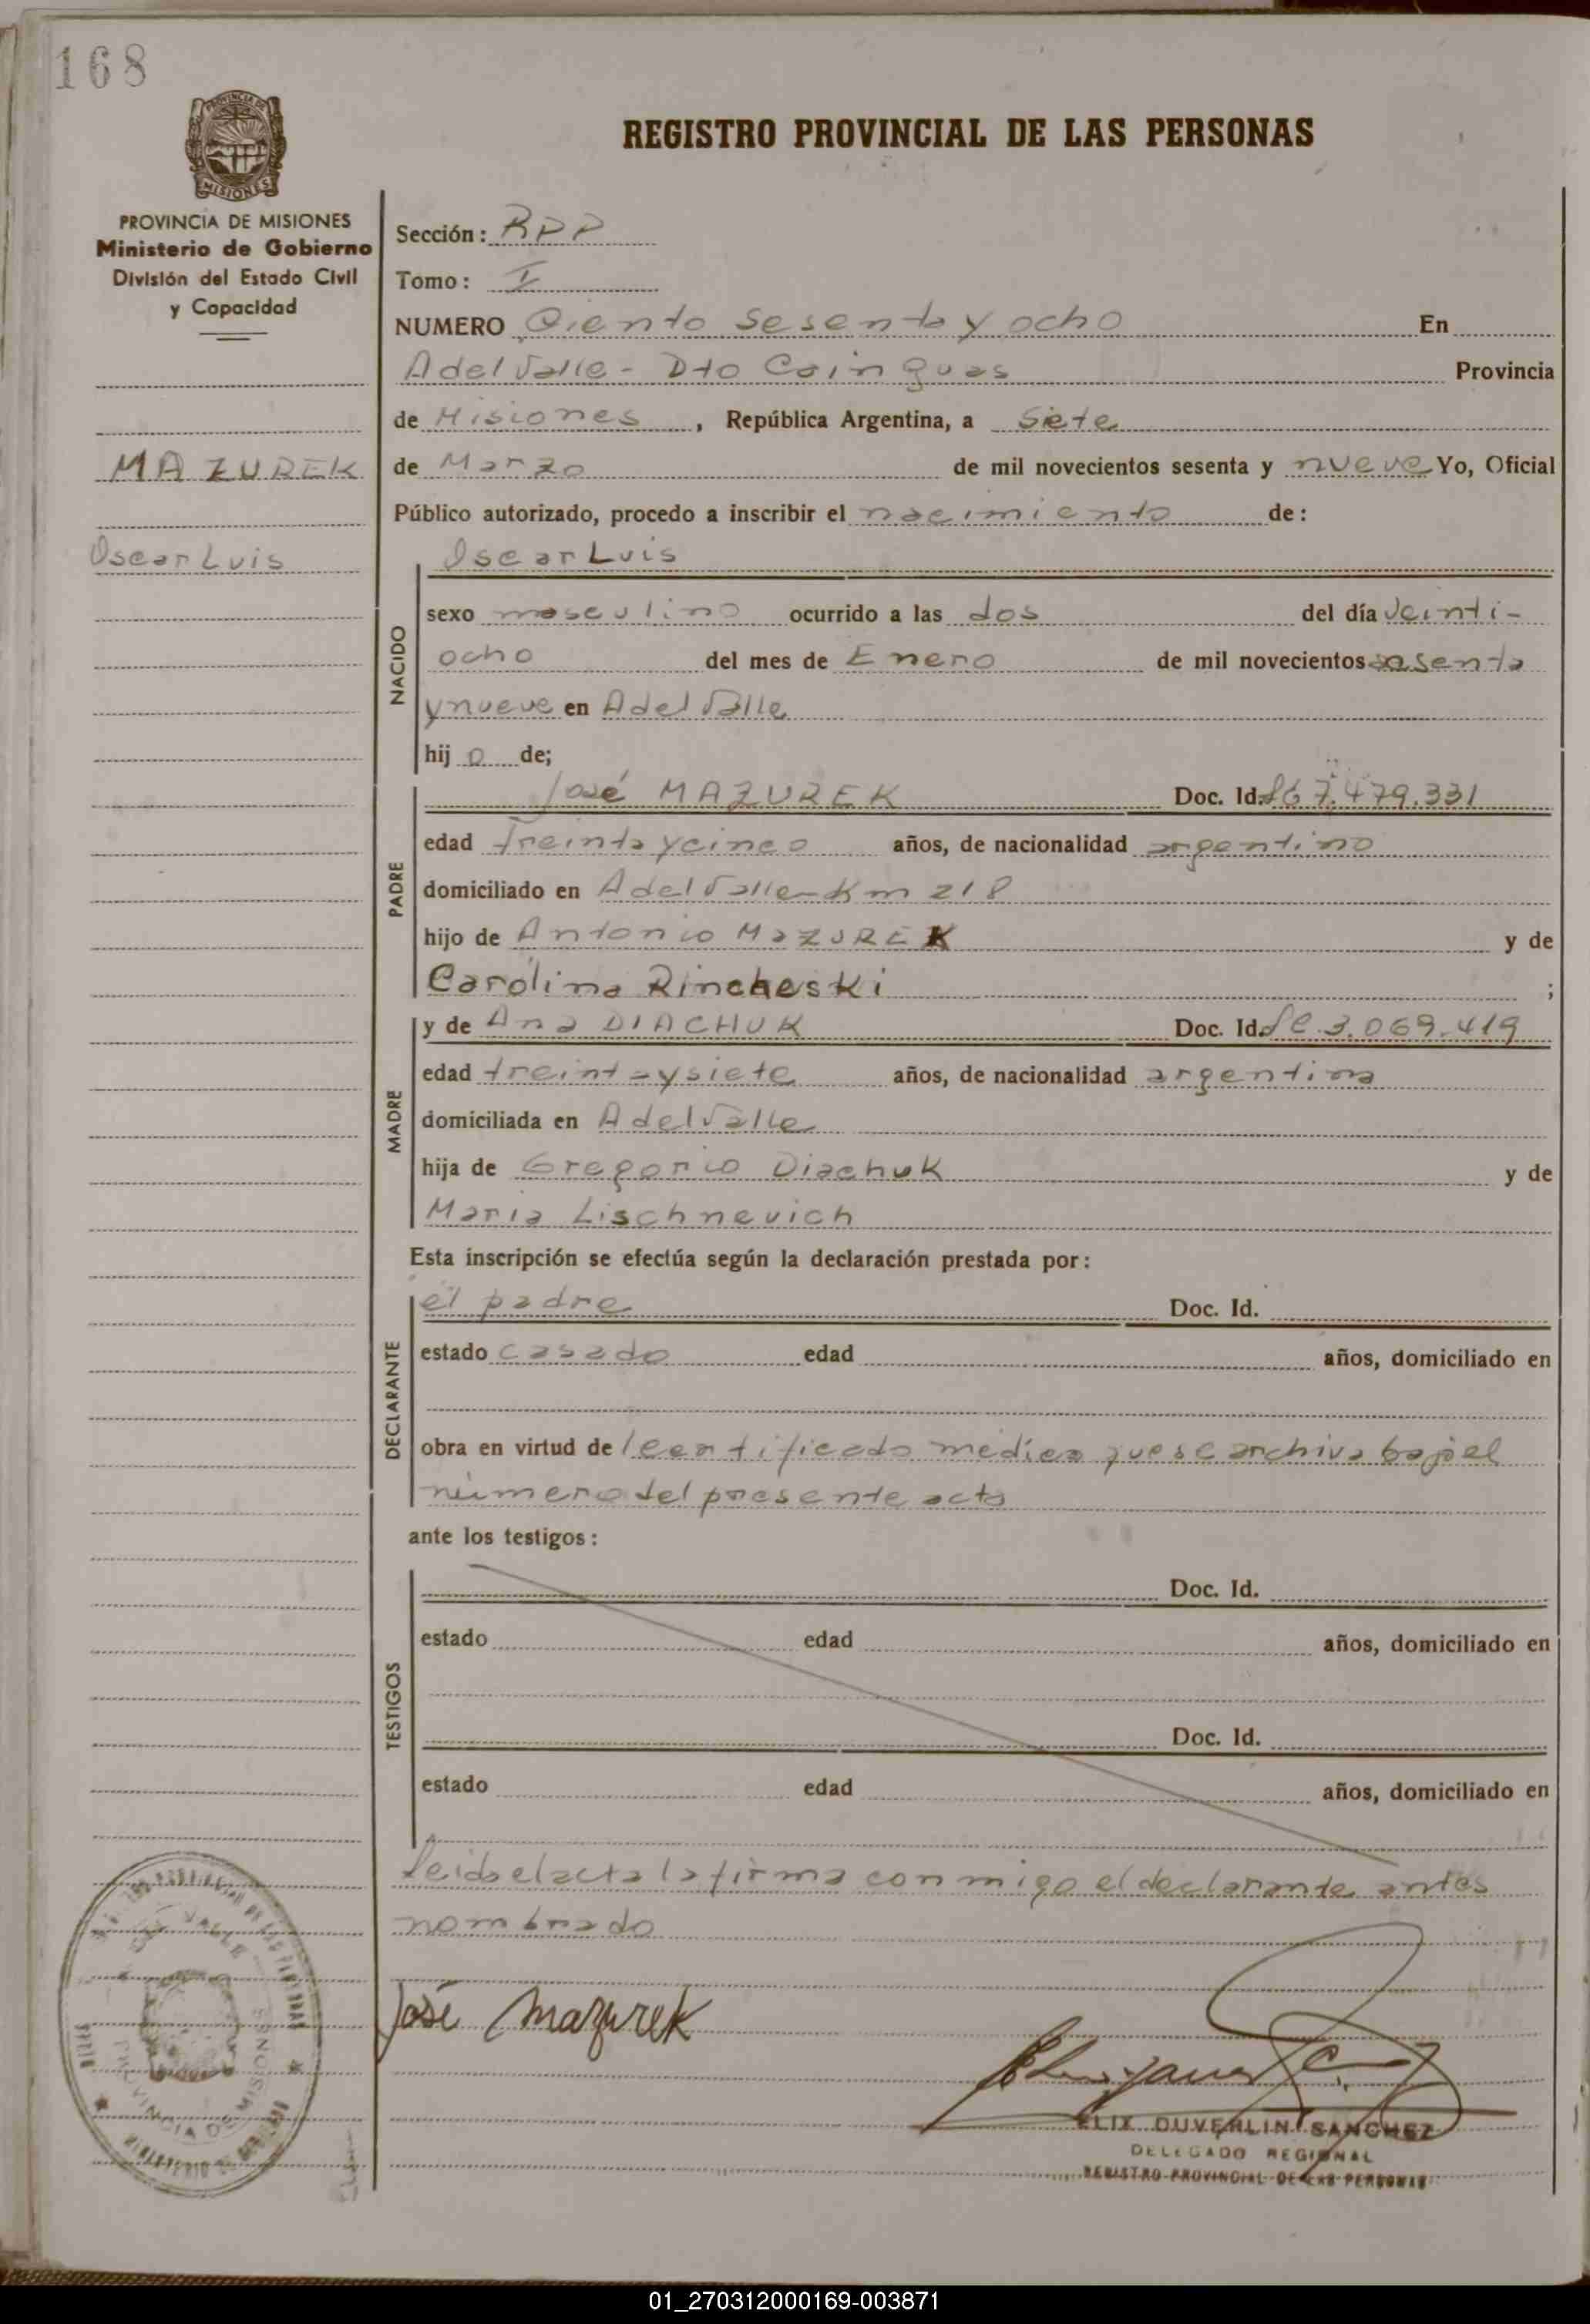 168
PROVINCIA DE MISIONES
MISIONES
PROVINCIA DE MISIONES
Ministerio de Gobierno
División del Estado Civil
y Capacidad
MAZUREK
Oscar Luis
REGISTRO PROVINCIAL DE LAS PERSONAS
Sección: RPP
Tomo: I
NUMERO Ciento sesenta y ocho En
A del Valle - Dto Cainguas Provincia
de Misiones, República Argentina, a siete
de Marzo de mil novecientos sesenta y nueve Yo, Oficial
Público autorizado, procedo a inscribir el nacimiento de:
Oscar Luis
NACIDO
sexo masculino ocurrido a las dos del día veinti-
ocho del mes de Enero de mil novecientos sesenta
y nueve en A del Valle
hij o de;
PADRE
José MAZUREK Doc. Id. 7.479.331
edad treinta y cinco años, de nacionalidad argentino
domiciliado en A del Valle - Km 218
hijo de Antonio MazUREK y de
Carolina Rincheski ;
MADRE
y de Ana DIACHUK Doc. Id. LC. 3.069.419
edad treinta y siete años, de nacionalidad argentina
domiciliada en A del Valle
hija de Gregorio Diachuk y de
Maria Lischnevich
Esta inscripción se efectúa según la declaración prestada por:
DECLARANTE
el padre Doc. Id.
estado casado edad años, domiciliado en
obra en virtud de certificado médico que se archiva bajo el
número del presente acta
ante los testigos:
TESTIGOS
Doc. Id.
estado edad años, domiciliado en
Doc. Id.
estado edad años, domiciliado en
Leida el acta la firma conmigo el declarante antes
nombrado
José Mazurek
ELIX DUVERLIN SANCHEZ
DELEGADO REGIONAL
REGISTRO PROVINCIAL DE LAS PERSONAS
PROVINCIA DE MISIONES
01_270312000169-003871